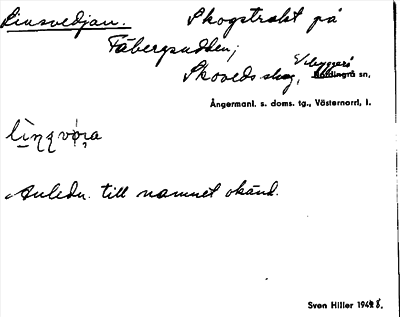 Linsvedjan. Skogstrakt på
Fäbergsudden;
Skoveds skog, Vibyggerå
Nordingrå sn,
Ångermanl. s. doms. tg., Västernorrl. l.
Anledn. till namnet okänd.
Sven Hiller 1942